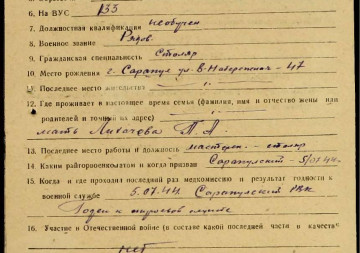 6. На ВУС 133
7. Должностная квалификация необучен
8. Военное звание Рядов.
9. Гражданская специальность Столяр
10. Место рождения г. Сарапул ул. В-Набережная - 47
11. Последнее место жительства
12. Где проживает в настоящее время семья (фамилия, имя и отчество жены или
родителей и точный их адрес)
мать П. А.
13. Последнее место работы и должность столяр
14. Каким райгорвоенкоматом и когда призван Сарапульский 5/07.44
15. Когда и где проходил последний раз медкомиссию и результат годности к
военной службе 5.07.44 Сарапульский РВК
Годен к службе
16. Участие в Отечественной войне (в составе какой последней части и качестве
нет